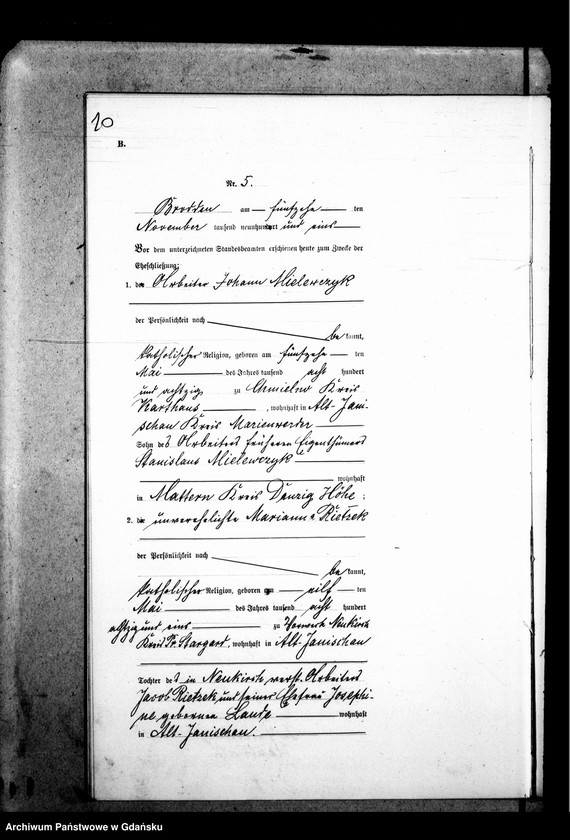 20
B.
Nr. 5.
Brodden am fünfzehn ten
November tausend neunhundert und eins
Vor dem unterzeichneten Standesbeamten erschienen heute zum Zwecke der
Eheschließung:
1. der Arbeiter Johann Mielewczyk
der Persönlichkeit nach
be kannt,
katholischer Religion, geboren am fünfzehn ten
Mai des Jahres tausend acht hundert
und achtzig zu Chmielno Kreis
Karthaus, wohnhaft in Alt-Jani-
schau Kreis Marienwerder
Sohn des Arbeiters früheren Eigenthümers
Stanislaus Mielewczyk
wohnhaft
in Mattern Kreis Danzig Höhe;
2. die unverehelichte Marianna Rietzek
der Persönlichkeit nach
be kannt,
katholischer Religion, geboren am eilf ten
Mai des Jahres tausend acht hundert
achtzig und eins zu Vorwerk Neukirch
Kreis Pr. Stargard, wohnhaft in Alt-Janischau
Tochter des in Neukirch verst. Arbeiters
Jacob Rietzek und seiner Ehefrau Josephi-
ne, geborenen Lande wohnhaft
in Alt-Janischau.
Archiwum Państwowe w Gdańsku